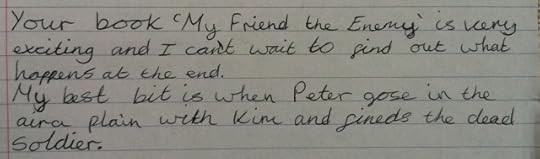 Your book 'My Friend the Enemy' is very
exciting and I can't wait to find out what
happens at the end.
My best bit is when Peter gose in the
aira plain with Kim and fineds the dead
soldier.